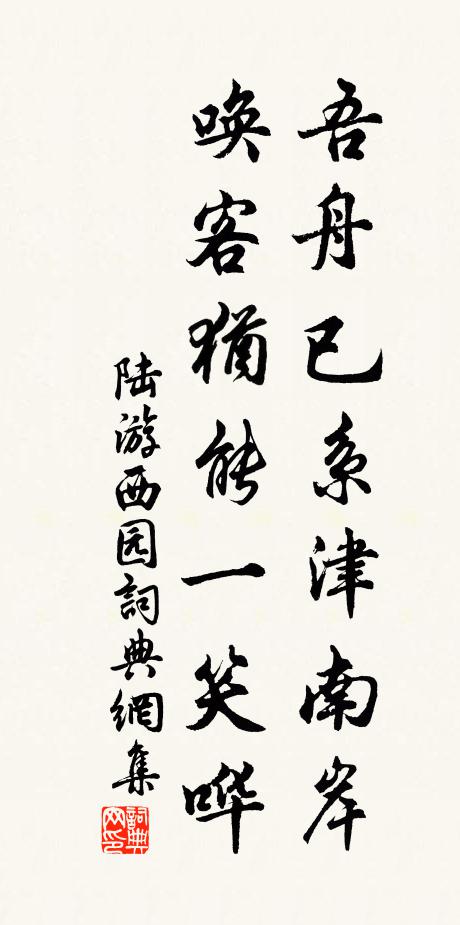 吾舟已系津南岸
唤客猶能一笑哗
陆游西园詞典網集
詞典网印